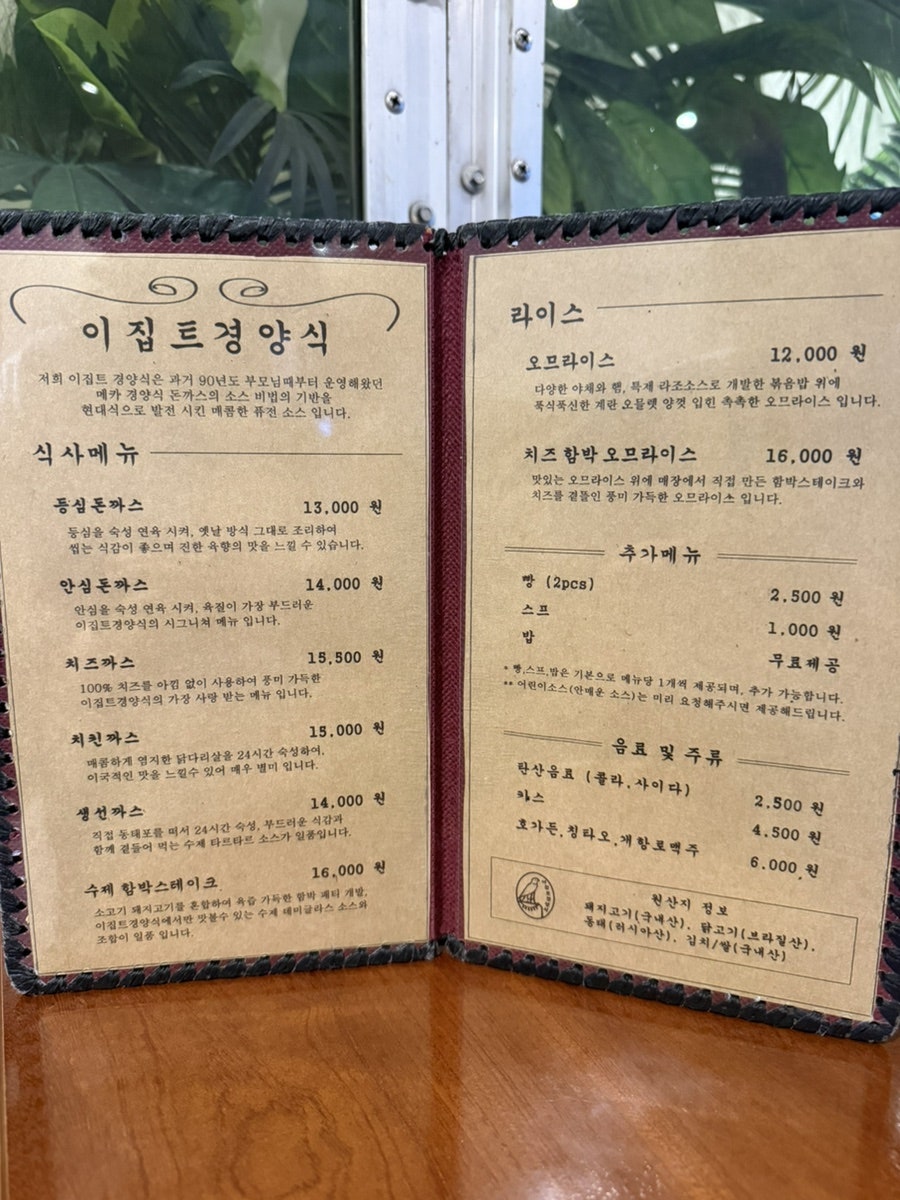 이집트경양식
저희 이집트 경양식은 과거 90년도 부모님때부터 운영해왔던
메카 경양식 돈까스의 소스 비법의 기반을
현대식으로 발전 시킨 매콤한 퓨전 소스 입니다.
식사메뉴
등심돈까스 13,000 원
등심을 숙성 연육 시켜, 옛날 방식 그대로 조리하여
씹는 식감이 좋으며 진한 육향의 맛을 느낄 수 있습니다.
안심돈까스 14,000 원
안심을 숙성 연육 시켜, 육질이 가장 부드러운
이집트경양식의 시그니쳐 메뉴 입니다.
치즈까스 15,500 원
100% 치즈를 아낌 없이 사용하여 풍미 가득한
이집트경양식의 가장 사랑 받는 메뉴 입니다.
치킨까스 15,000 원
매콤하게 염지한 닭다리살을 24시간 숙성하여,
이국적인 맛을 느낄수 있어 매우 별미 입니다.
생선까스 14,000 원
직접 동태포를 떠서 24시간 숙성, 부드러운 식감과
함께 곁들어 먹는 수제 타르타르 소스가 일품입니다.
수제 함박스테이크 16,000 원
소고기 돼지고기를 혼합하여 육즙 가득한 함박 패티 개발,
이집트경양식에서만 맛볼수 있는 수제 데미글라스 소스와
조합이 일품 입니다.
라이스
오므라이스 12,000 원
다양한 야채와 햄, 특제 라조소스로 개발한 볶음밥 위에
푹식푹신한 계란 오믈렛 양껏 입힌 촉촉한 오므라이스 입니다.
치즈 함박 오므라이스 16,000 원
맛있는 오므라이스 위에 매장에서 직접 만든 함박스테이크와
치즈를 곁들인 풍미 가득한 오므라이스 입니다.
추가메뉴
빵 (2pcs) 2,500 원
스프 1,000 원
밥 무료제공
* 빵,스프,밥은 기본으로 메뉴당 1개씩 제공되며, 추가 가능합니다.
** 어린이소스(안매운 소스)는 미리 요청해주시면 제공해드립니다.
음료 및 주류
탄산음료 (콜라,사이다) 2,500 원
카스 4,500 원
호가든,칭타오,개항로맥주 6,000 원
원산지 정보
돼지고기(국내산), 닭고기(브라질산),
동태(러시아산), 김치/쌀(국내산)